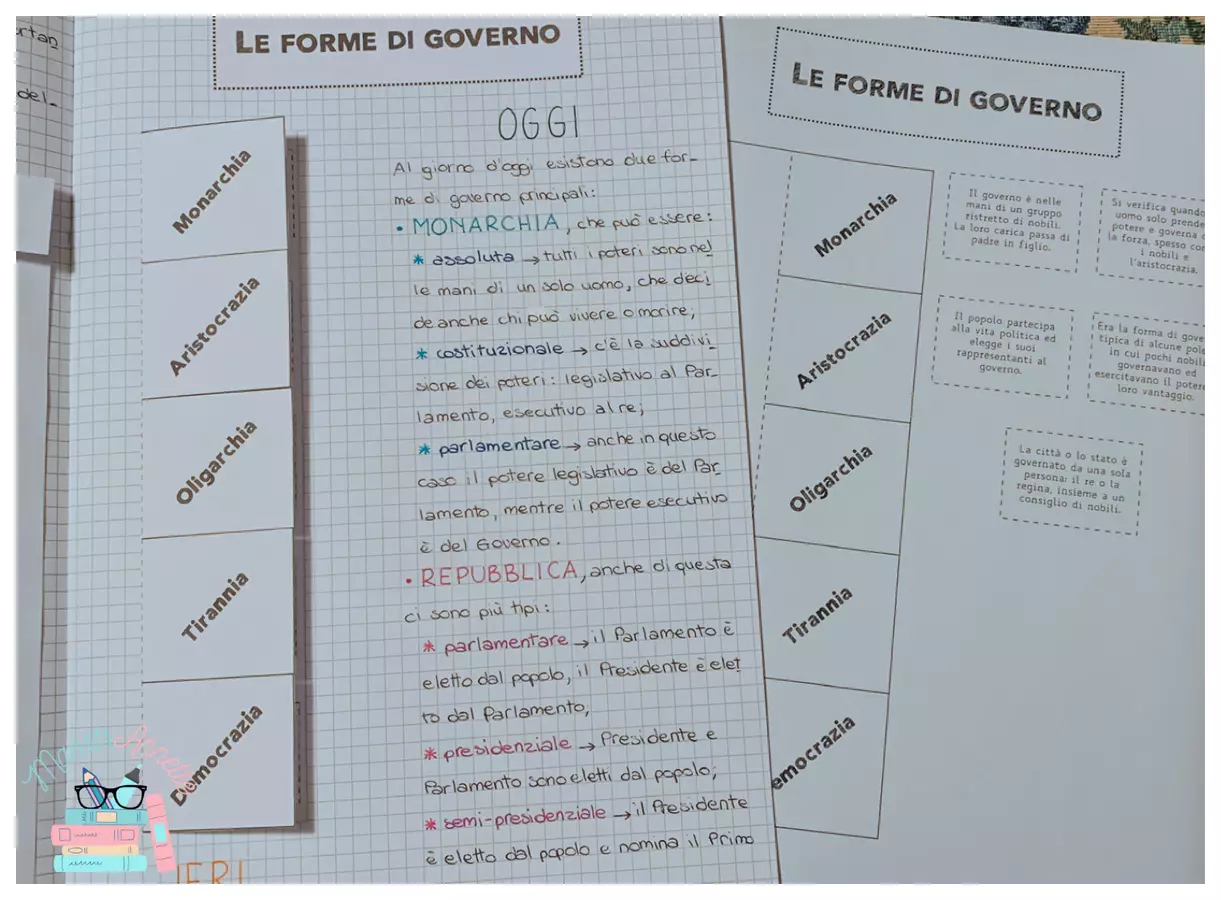 rtan
del-
LE FORME DI GOVERNO
Monarchia
Aristocrazia
Oligarchia
Tirannia
Democrazia
OGGI
Al giorno d'oggi esistono due for-
me di governo principali:
• MONARCHIA, che può essere:
* assoluta → tutti i poteri sono nel
le mani di un solo uomo, che deci
de anche chi può vivere o morire;
* costituzionale → c'è la suddivi
sione dei poteri: legislativo al Par-
lamento, esecutivo al re;
* parlamentare → anche in questo
caso il potere legislativo è del Par
lamento, mentre il potere esecutivo
è del Governo.
• REPUBBLICA, anche di questa
ci sono più tipi:
* parlamentare → il Parlamento è
eletto dal popolo, il Presidente è elet
to dal Parlamento,
* presidenziale → Presidente e
Parlamento sono eletti dal popolo;
* semi-presidenziale → il Presidente
è eletto dal popolo e nomina il Primo
IERI
LE FORME DI GOVERNO
Monarchia
Aristocrazia
Oligarchia
Tirannia
emocrazia
Il governo è nelle
mani di un gruppo
ristretto di nobili.
La loro carica passa di
padre in figlio.
Si verifica quando
uomo solo prende
potere e governa c
la forza, spesso con
i nobili e
l'aristocrazia.
Il popolo partecipa
alla vita politica ed
elegge i suoi
rappresentanti al
governo.
Era la forma di gove
tipica di alcune pole
in cui pochi nobili
governavano ed
esercitavano il potere
loro vantaggio.
La città o lo stato è
governato da una sola
persona: il re o la
regina, insieme a un
consiglio di nobili.